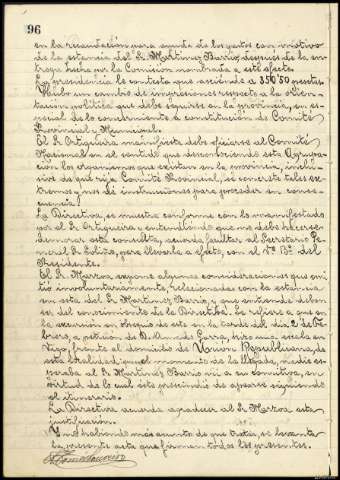 96
en la recaudación para ayuda de los gastos con motivo
de la estancia del Sr. Martinez Barrio, despues de la en-
trega hecha por la Comision nombrada a este efecto.
La presidencia le contesta que asciende a 350'50 pesetas.
Hubo un cambio de impresiones respecto a la orien-
tación política que debe seguirse en la provincia, en es-
pecial de lo concerniente a constitución de Comité
Provincial y Municipal.
El Sr. Ortigueira manifiesta debe oficiarse al Comité
Nacional en el sentido que desconociendo esta Agrupa-
ción los organismos que existen en la provincia, inclu-
sive de que rija Comité Provincial, se concrete tales ex-
tremos y nos dé instrucciones para proceder en conse-
cuencia.
La Directiva, se muestra conforme con lo manifestado
por el Sr. Ortigueira y entendiendo que no debe hacerse
demorar esta consulta, acuerda facultar al Secretario Ge-
neral Sr. Soliño, para llevarla a efecto, con el Vº. Bº. del
Presidente.
El Sr. Marzoa expone algunas consideraciones que omi-
tió involuntariamente, relacionadas con la estancia
en esta del Sr. Martinez Barrio, y que entiende deben
ser del conocimiento de la Directiva. Se refiere a que en
la excursión en obsequio de este en la tarde del dia 2 de Fe-
brero, a petición de D. Amado Garra, hizo una escala en
Vigo, frente al domicilio de Unión Republicana, de
esta localidad, y en el momento de la llegada, nadie es-
peraba al Sr. Martinez Barrio ni a su comitiva, en
virtud de lo cual éste prescindió de apearse siguiendo
el itinerario.
La Directiva acuerda agradecer al Sr. Marzoa esta
justificación.
Y no habiendo más asuntos de que tratar, se levanta
la presente acta que firman todos los presentes.